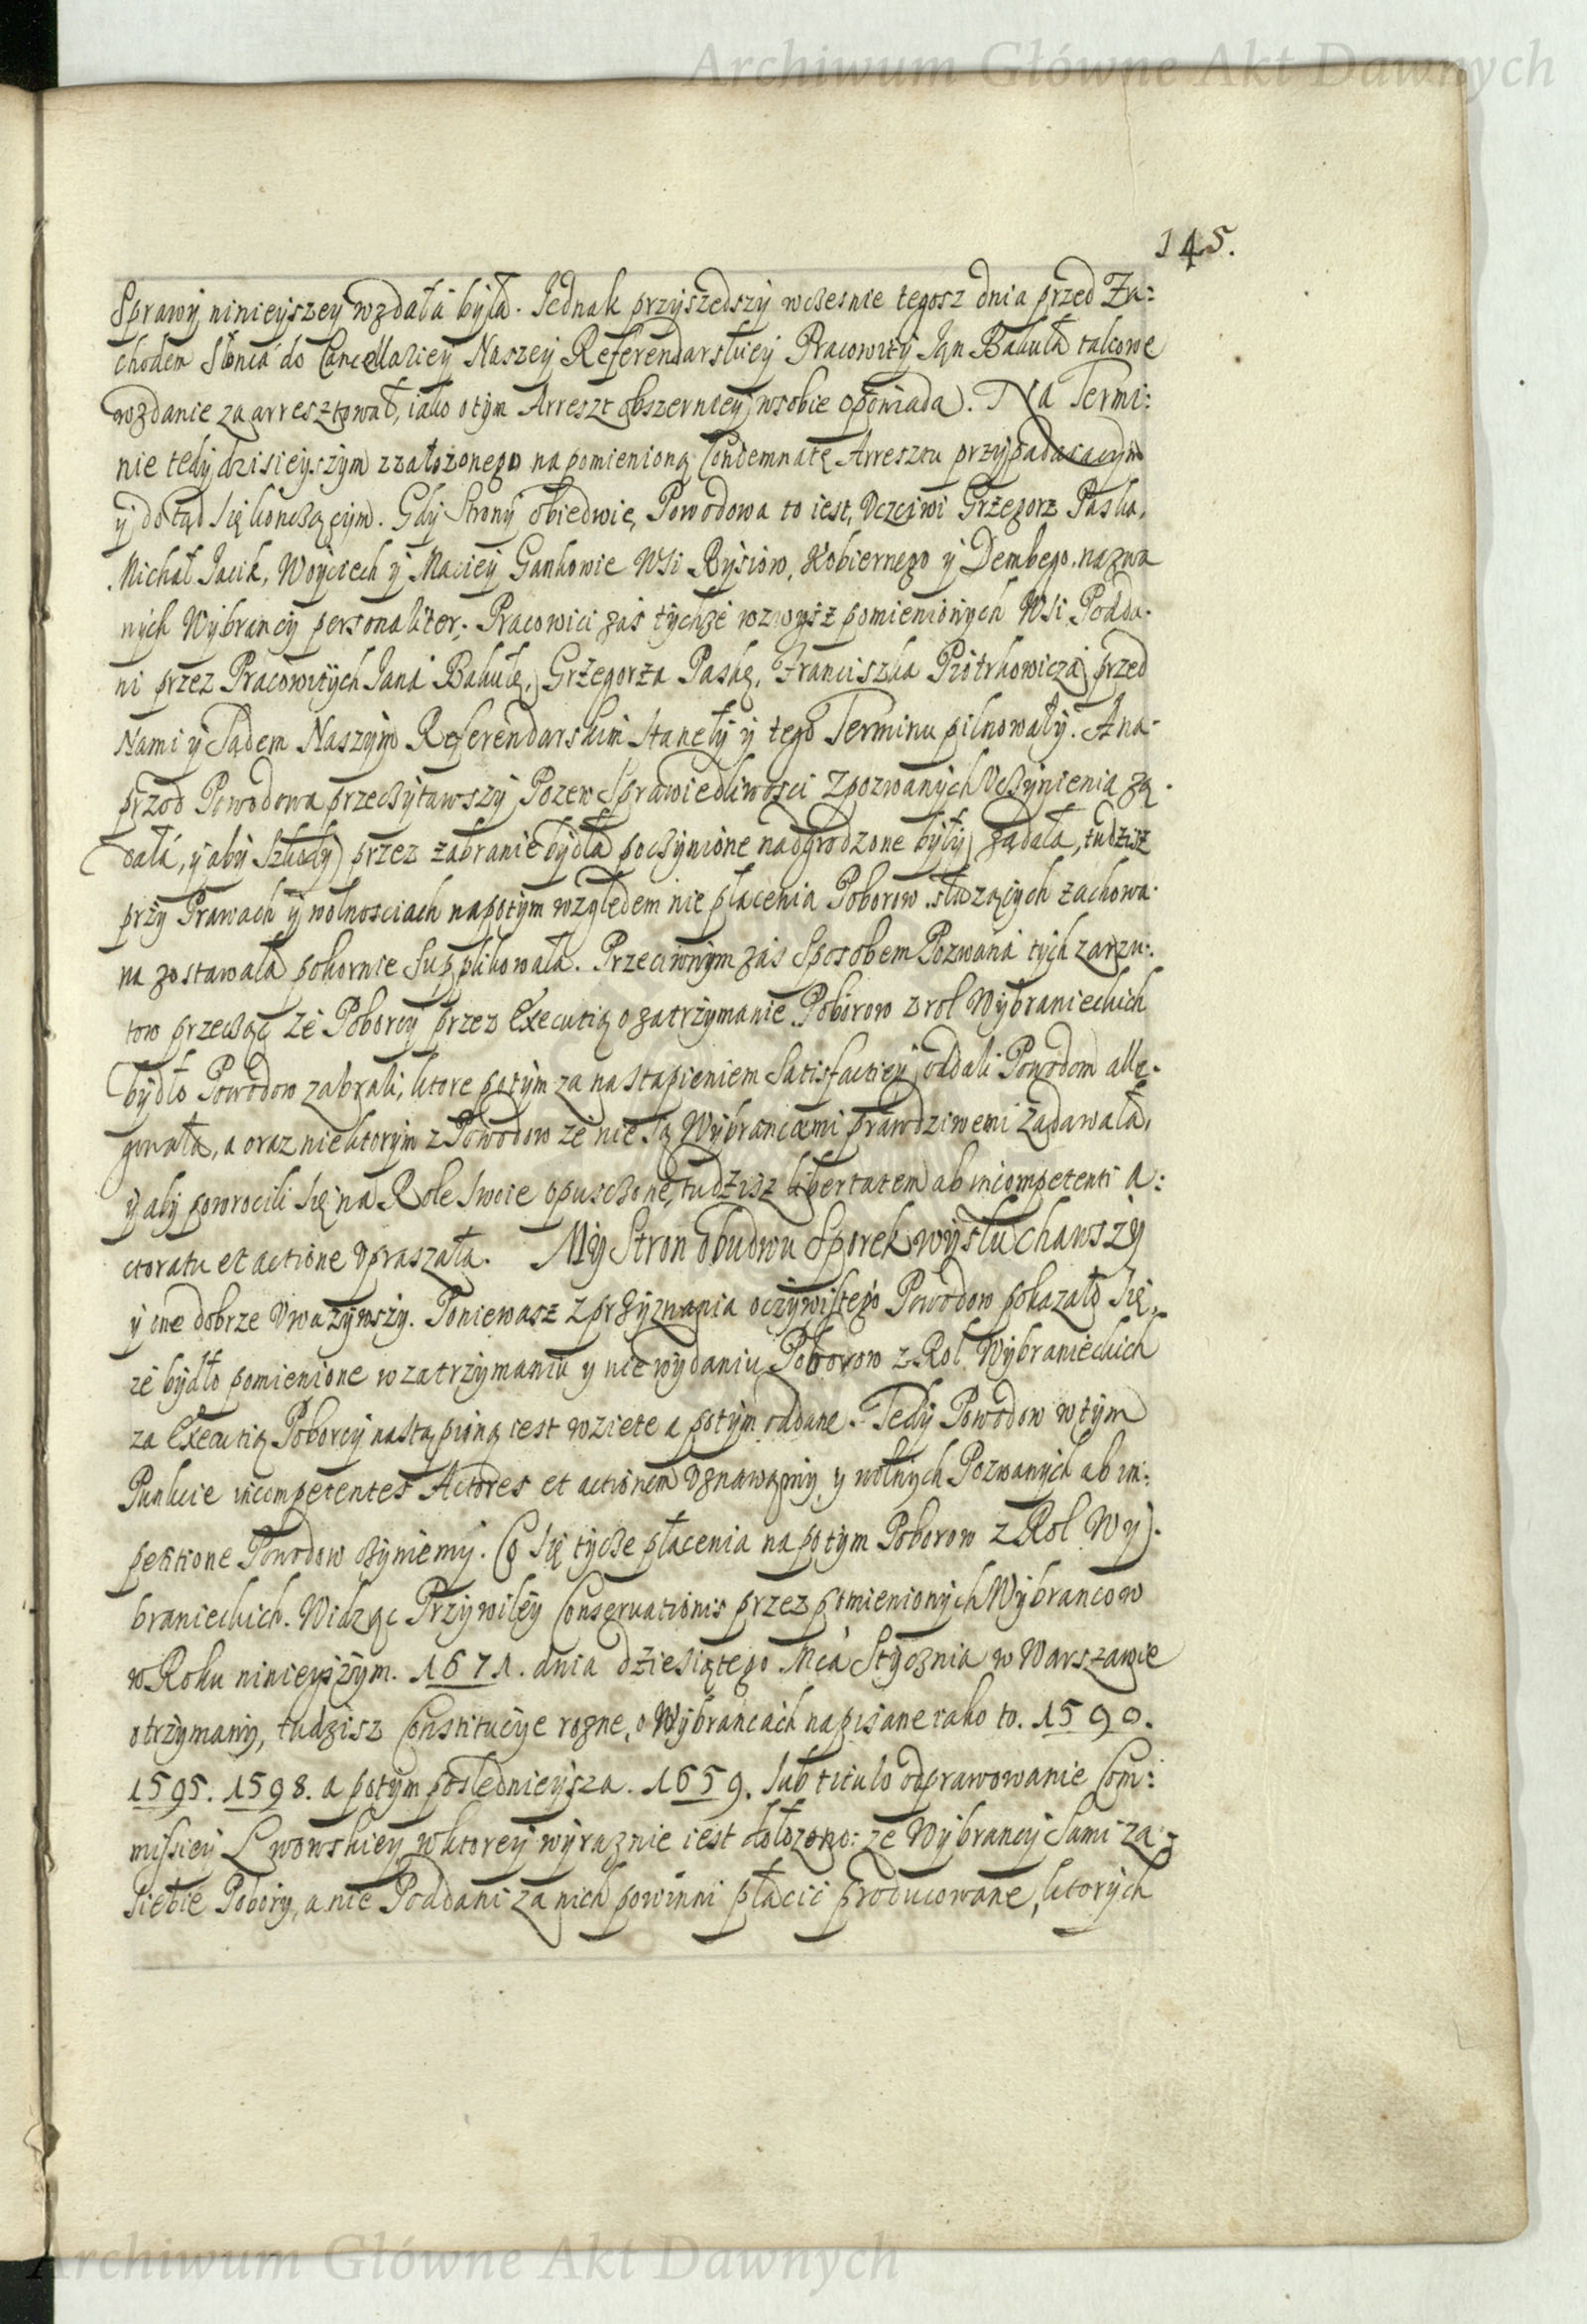 Archiwum Główne Akt Dawnych
145.
Sprawy ninieyszey wzdała była. Jednak przyszedszy wczesnie tegosz dnia przed Za:
chodem Słonca do Cancellariey Naszey Referendarskiey Pracowity Jan Bakuła takowe
wzdanie zaarresztował, iako o tym Arreszt obszerniey w sobie opowiada. Na Termi:
nie tedy dzisieyszym z założonego na pomienioną Condemnatę Arresztu przypadaiącym
y dotąd się konczącym. Gdy Strony obiedwie, Powodowa to iest, Uczciwi Grzegorz Paska,
Michał Jacik, Woyciech y Maciey Gankowie WSi Rysiow, Kobiernego y Dembego nazwa
nych Wybrancy personaliter, Pracowici zas tychze wzwysz pomienionych WSi Podda:
ni przez Pracowitych Jana Bakułę, Grzegorza Paskę, Franciszka Piotrkowicza przed
Nami y Sądem Naszym Referendarskim stanęły y tego Terminu pilnowały. A na:
przod Powodowa przeczytawszy Pozew Sprawiedliwosci z pozwanych Uczynienia żą:
dała, y aby szkody przez zabranie bydła poczynione nadgrodzone były żądała, tudzisz
przy Prawach y wolnosciach napotym względem nie płacenia Poborow służących zachowa:
na zostawała pokornie supplikowała. Przeciwnym zas Sposobem Pozwana tych zarzu:
tow przecząc ze Poborcy przez Executią o zatrzymanie Poborow z rol Wybranieckich
bydło Powodow zabrali, ktore potym za nastąpieniem Satisfactiey oddali Powodom alle:
gowała, a oraz niektorym z Powodow ze nie są Wybrancami prawdziwemi zadawała,
y aby powrocili się na Role swoie opusczone, tudzisz libertatem ab incompetenti A:
ctoratu et actione Upraszała. My Stron obudwu Sporek wysłuchawszy
y one dobrze Uwazywszy. Poniewasz z przyznania oczywistego Powodow pokazało się,
ze bydło pomienione w zatrzymaniu y nie wydaniu Poborow z Rol Wybranieckich
za Executią Poborcy nastąpioną iest wzięte a potym oddane. Tedy Powodow w tym
Punkcie incompetentes Actores et actionem Uznawamy, y wolnych Pozwanych ab im:
petitione Powodow czyniemy. Co się tycze płacenia na potym Poborow z Rol Wy:
branieckich. Widząc Przywiley Conservationis przez pomienionych Wybrancow
w Roku ninieyszym. 1671. dnia dziesiątego Mca Stycznia w Warszawie
otrzymany, tudzisz Constitucye rozne, o Wybrancach napisane iako to. 1590.
1595. 1598. a potym poslednieysza. 1659. sub titulo odprawowanie Com:
missiey Lwowskiey, w ktorey wyraznie iest dołozono: ze Wybrancy sami za
siebie Pobory, a nie Poddani za nich powinni płacic producowane, ktorych
Archiwum Główne Akt Dawnych